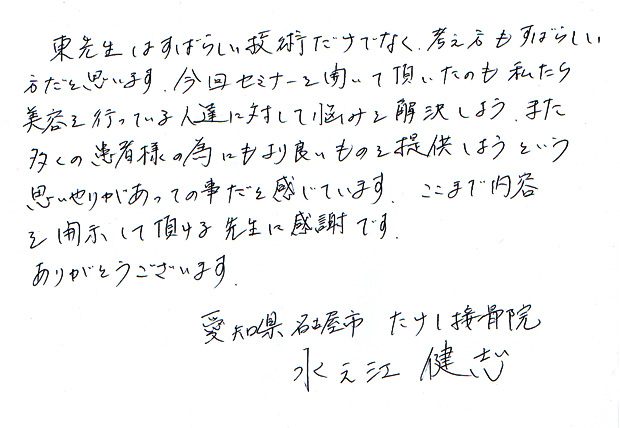 東先生はすばらしい技術だけでなく、考え方もすばらしい
方だと思います。今回セミナーを開いて頂いたのも私たち
美容を行っている人達に対して悩みを解決しよう、また
多くの患者様の為にもより良いものを提供しようという
思いやりがあっての事だと感じています。ここまで内容
を開示して頂ける先生に感謝です。
ありがとうございます。
愛知県名古屋市 たけし接骨院
水え江 健志